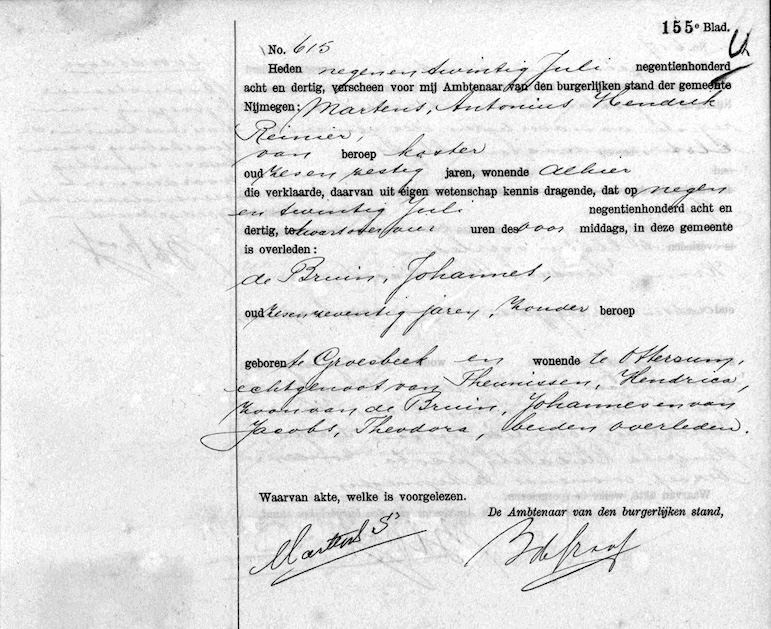 155e Blad.
No. 615
Heden negen en twintig Juli negentienhonderd
acht en dertig, verscheen voor mij Ambtenaar van den burgerlijken stand der gemeente
Nijmegen: Martens, Antonius Hendrik
Reinier,
van beroep koster
oud zes en zestig jaren, wonende alhier
die verklaarde, daarvan uit eigen wetenschap kennis dragende, dat op negen
en twintig Juli negentienhonderd acht en
dertig, te kwart over vier uren des voor middags, in deze gemeente
is overleden:
de Bruin, Johannes,
oud zes en zeventig jaren, zonder beroep
geboren te Groesbeek en wonende te Ottersum,
echtgenoot van Theunissen, Hendrica,
zoon van de Bruin, Johannes en van
Jacobs, Theodora, beiden overleden.
Waarvan akte, welke is voorgelezen.
De Ambtenaar van den burgerlijken stand,
Martens